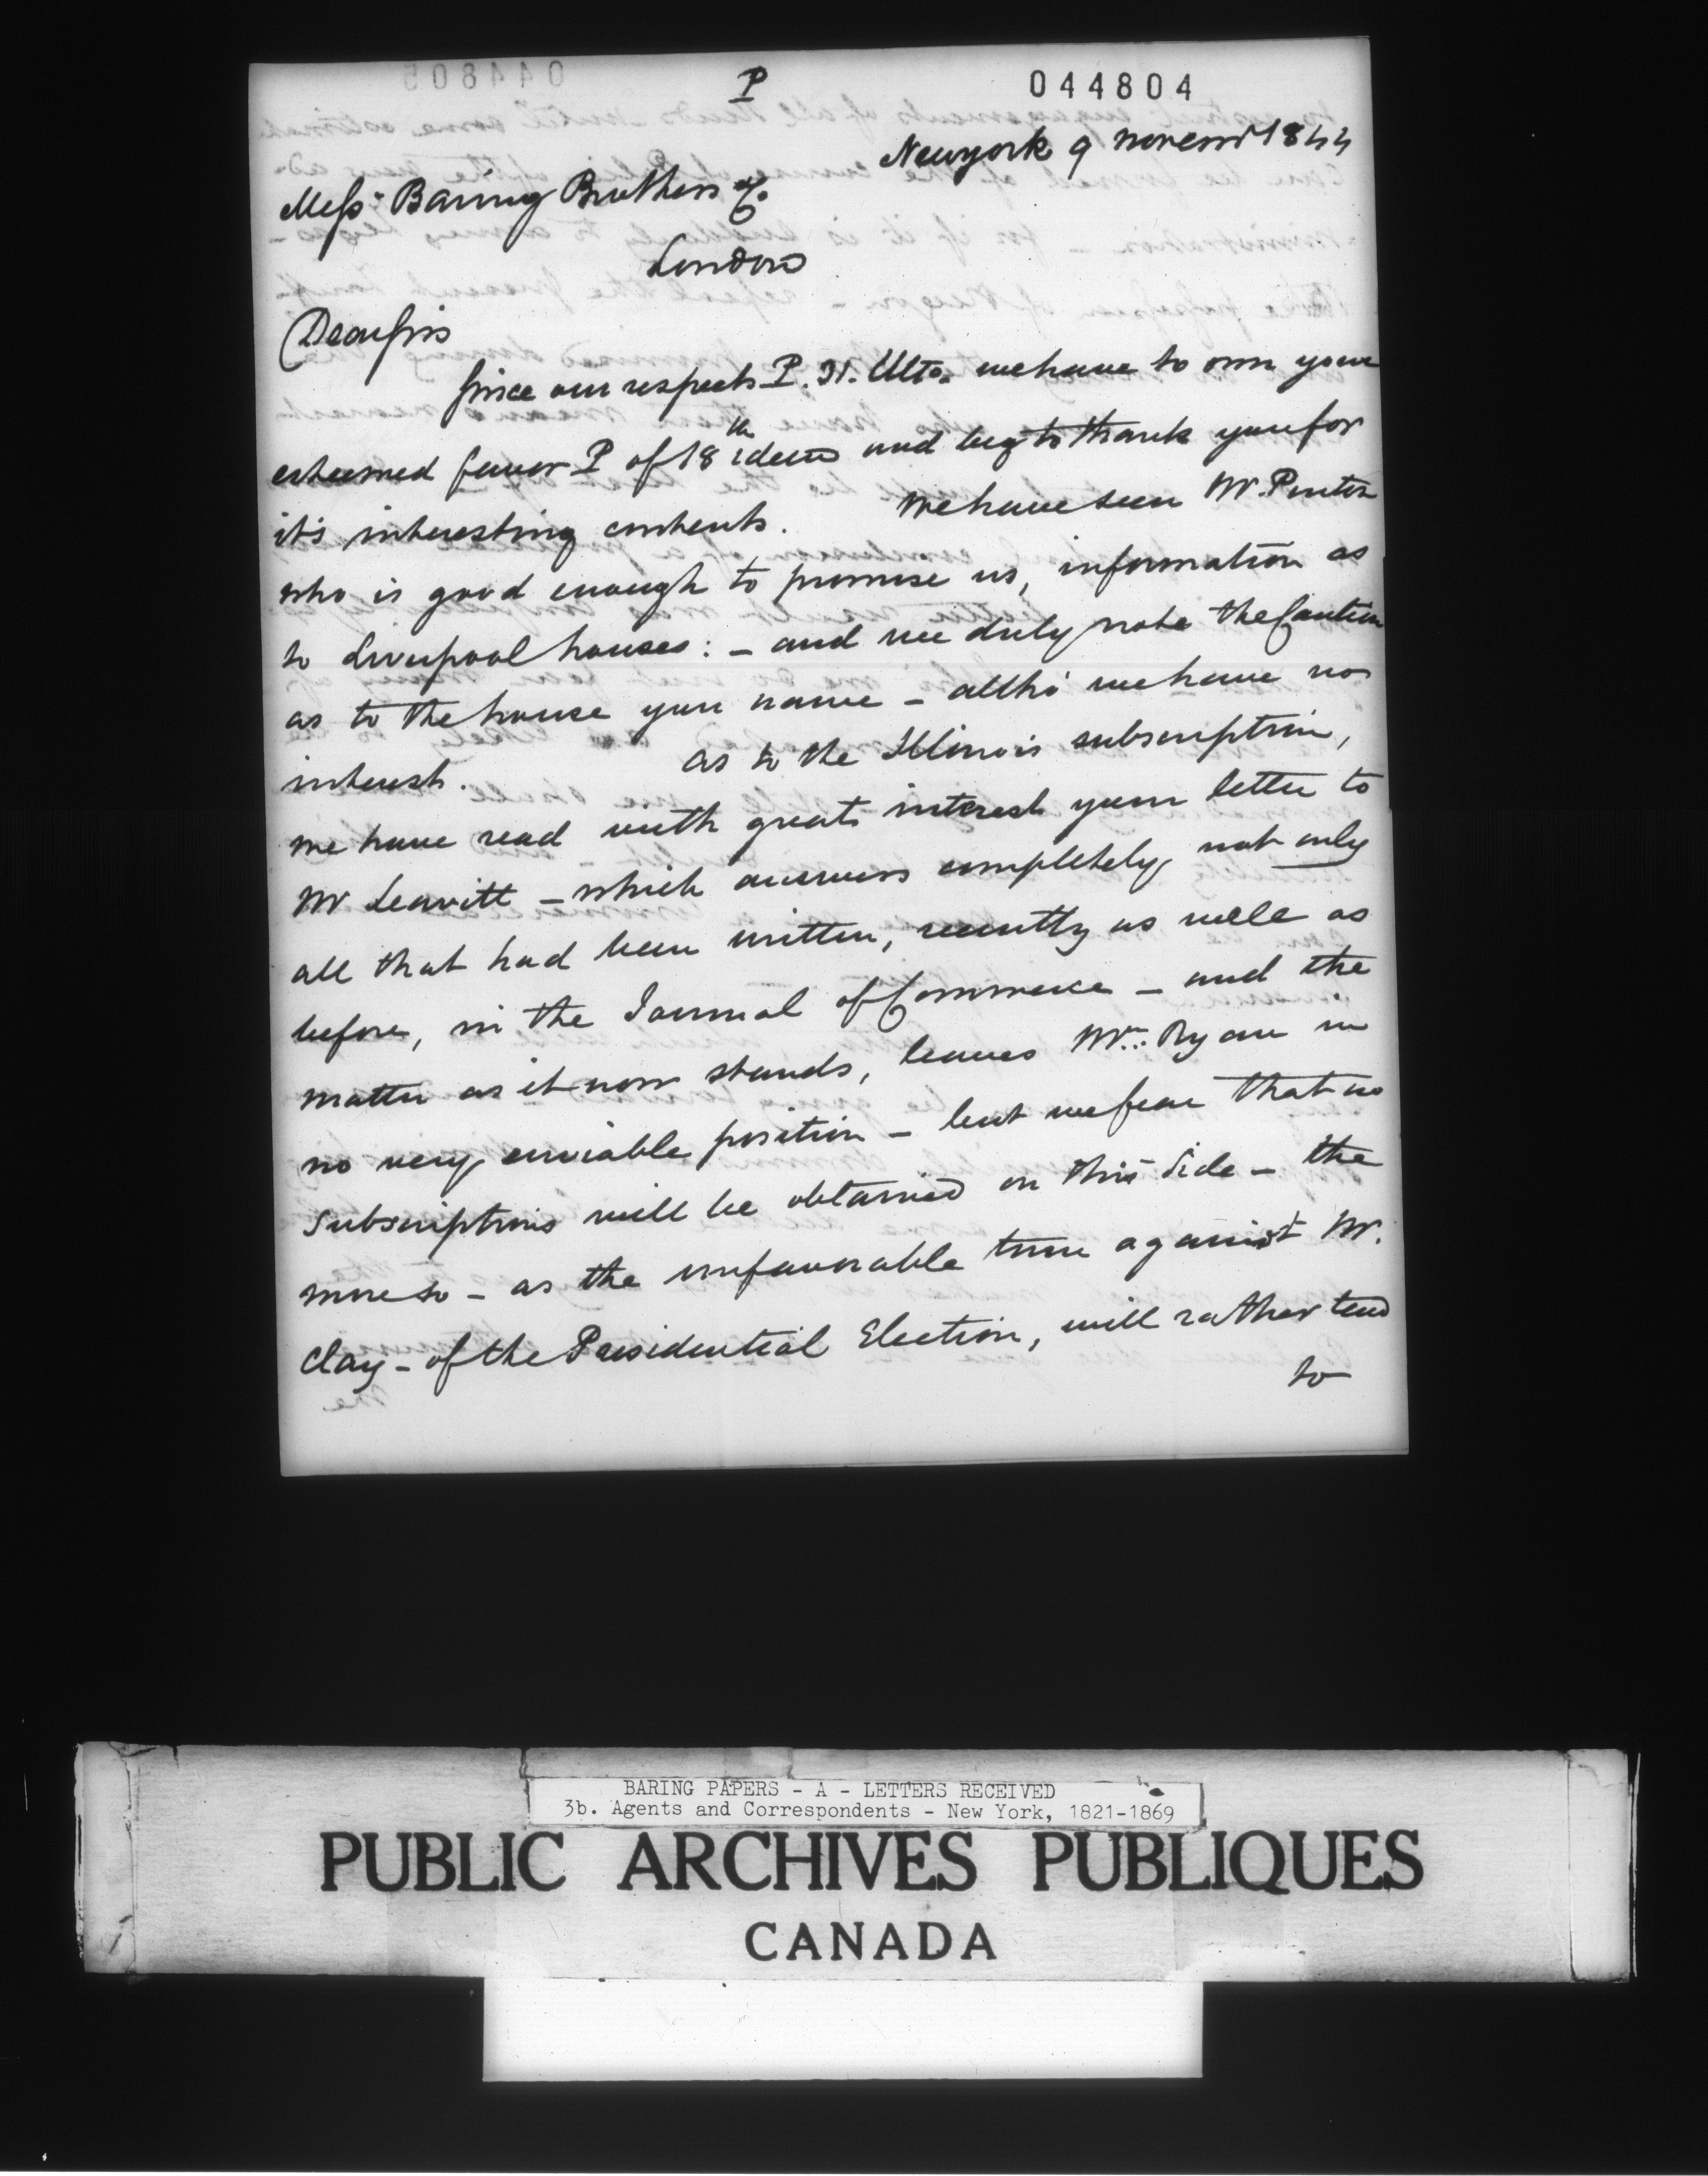 P
044804
Newyork 9 Novemr 1844
Mess.rs Baring Brothers & Co
London
Dear Sirs
Since our respects P. 31. Ulto. we have to own your
esteemed favor P of 18th idem and beg to thank you for
it's interesting contents. We have seen Mr.
who is good enough to promise us, information as
to Liverpool houses: – and we duly note the Caution
as to the house you name – altho' we have no
interest. As to the Illinois subscription,
we have read with great interest your letter to
Mr Leavitt – which answers completely, not only
all that had been written, recently as well as
before, in the Journal of Commerce – and the
matter as it now stands, leaves Mr. Ryan in
no very enviable position – but we fear that no
subscriptions will be obtained on this side – the
more so – as the unfavorable turn against Mr.
Clay – of the Presidential Election, will rather tend
to
BARING PAPERS - A - LETTERS RECEIVED
3b. Agents and Correspondents - New York, 1821-1869
PUBLIC ARCHIVES PUBLIQUES
CANADA